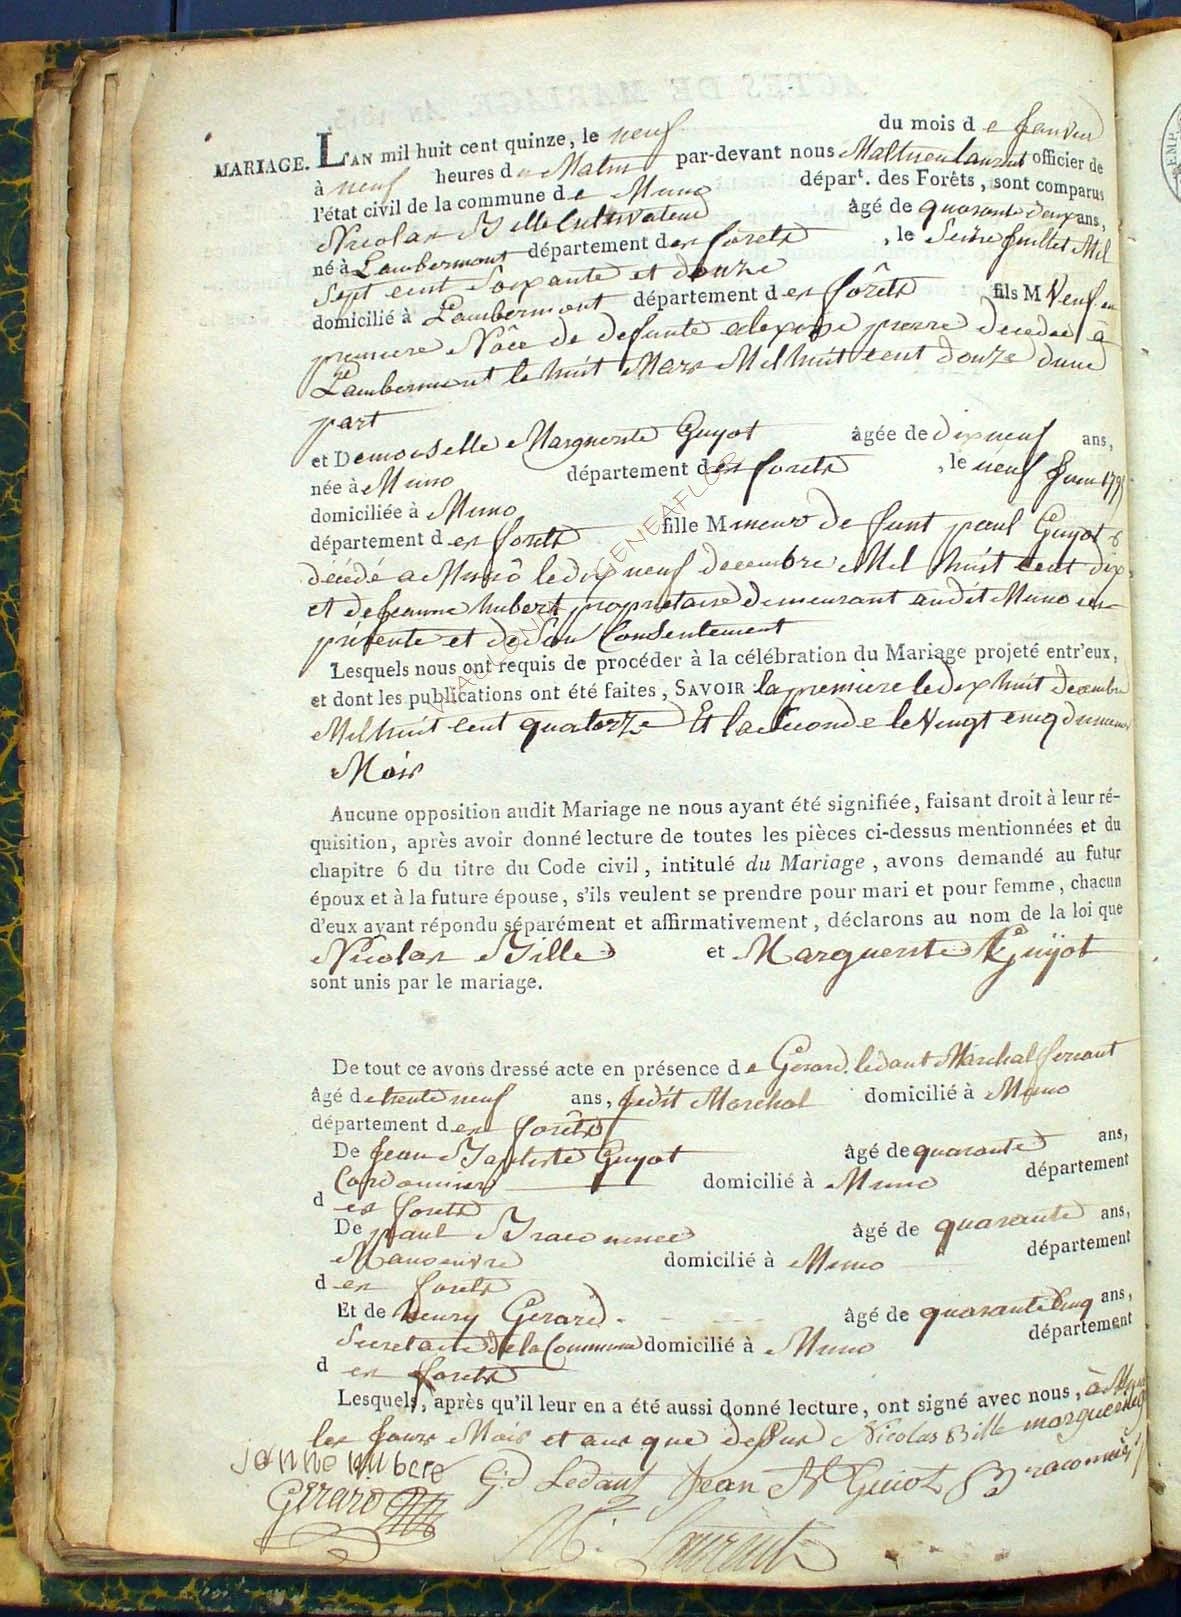 MARIAGE. L'AN mil huit cent quinze, le neuf du mois de Janvier
à neuf heures du Matin par-devant nous Mathieu Laurent officier de
l'état civil de la commune de Muno départ. des Forêts, sont comparus
Nicolas Bille Cultivateur âgé de quarante deux ans,
né à Lambermont département des forets, le Seize Juillet Mil
Sept cent Soixante et douze
domicilié à Lambermont département des fôrets fils M Veuf en
premiere Nôce de defunte pierre decedée à
Lambermont le huit Mars Mil huit cent douze dune
part
et Demoiselle Marguerite Guyot âgée de dix neuf ans,
née à Muno département des forets, le neuf Juin 1795
domiciliée à Muno
département des forets fille Mineure de funt paul Guyot
décédé a Muno le dix neuf decembre Mil huit cent dix
et de Jeanne hubert proprietaire demeurant audit Muno ici
présente et de Son Consentement
Lesquels nous ont requis de procéder à la célébration du Mariage projeté entr'eux,
et dont les publications ont été faites, SAVOIR la premiere le dix huit decembre
Mil huit cent quatorze Et la Seconde le Vingt cinq du meme
Mois
Aucune opposition audit Mariage ne nous ayant été signifiée, faisant droit à leur ré-
quisition, après avoir donné lecture de toutes les pièces ci-dessus mentionnées et du
chapitre 6 du titre du Code civil, intitulé du Mariage, avons demandé au futur
époux et à la future épouse, s'ils veulent se prendre pour mari et pour femme, chacun
d'eux ayant répondu séparément et affirmativement, déclarons au nom de la loi que
Nicolas Bille et Marguerite Guÿot
sont unis par le mariage.
De tout ce avons dressé acte en présence de Gerard ledant Marchal ferrant
âgé de trente neuf ans, ledit Marchal domicilié à Muno
département des forêts
De Jean Baptiste Guyot âgé de quarante ans,
Cordonnier domicilié à Muno département
des forets
De paul Braconnier âgé de quarante ans,
Manoeuvre domicilié à Muno département
des forets
Et de henry Gerard âgé de quarante Cinq ans,
Secretaire de la Commune domicilié à Muno département
des forets
Lesquels, après qu'il leur en a été aussi donné lecture, ont signé avec nous, à Muno
les Jours Mois et ans que dessus Nicolas Bille marguerite
janne hubere G.d Ledant Jean Bte Guiot Braconnier
Gerard
M. Laurent
GENEAFLOR